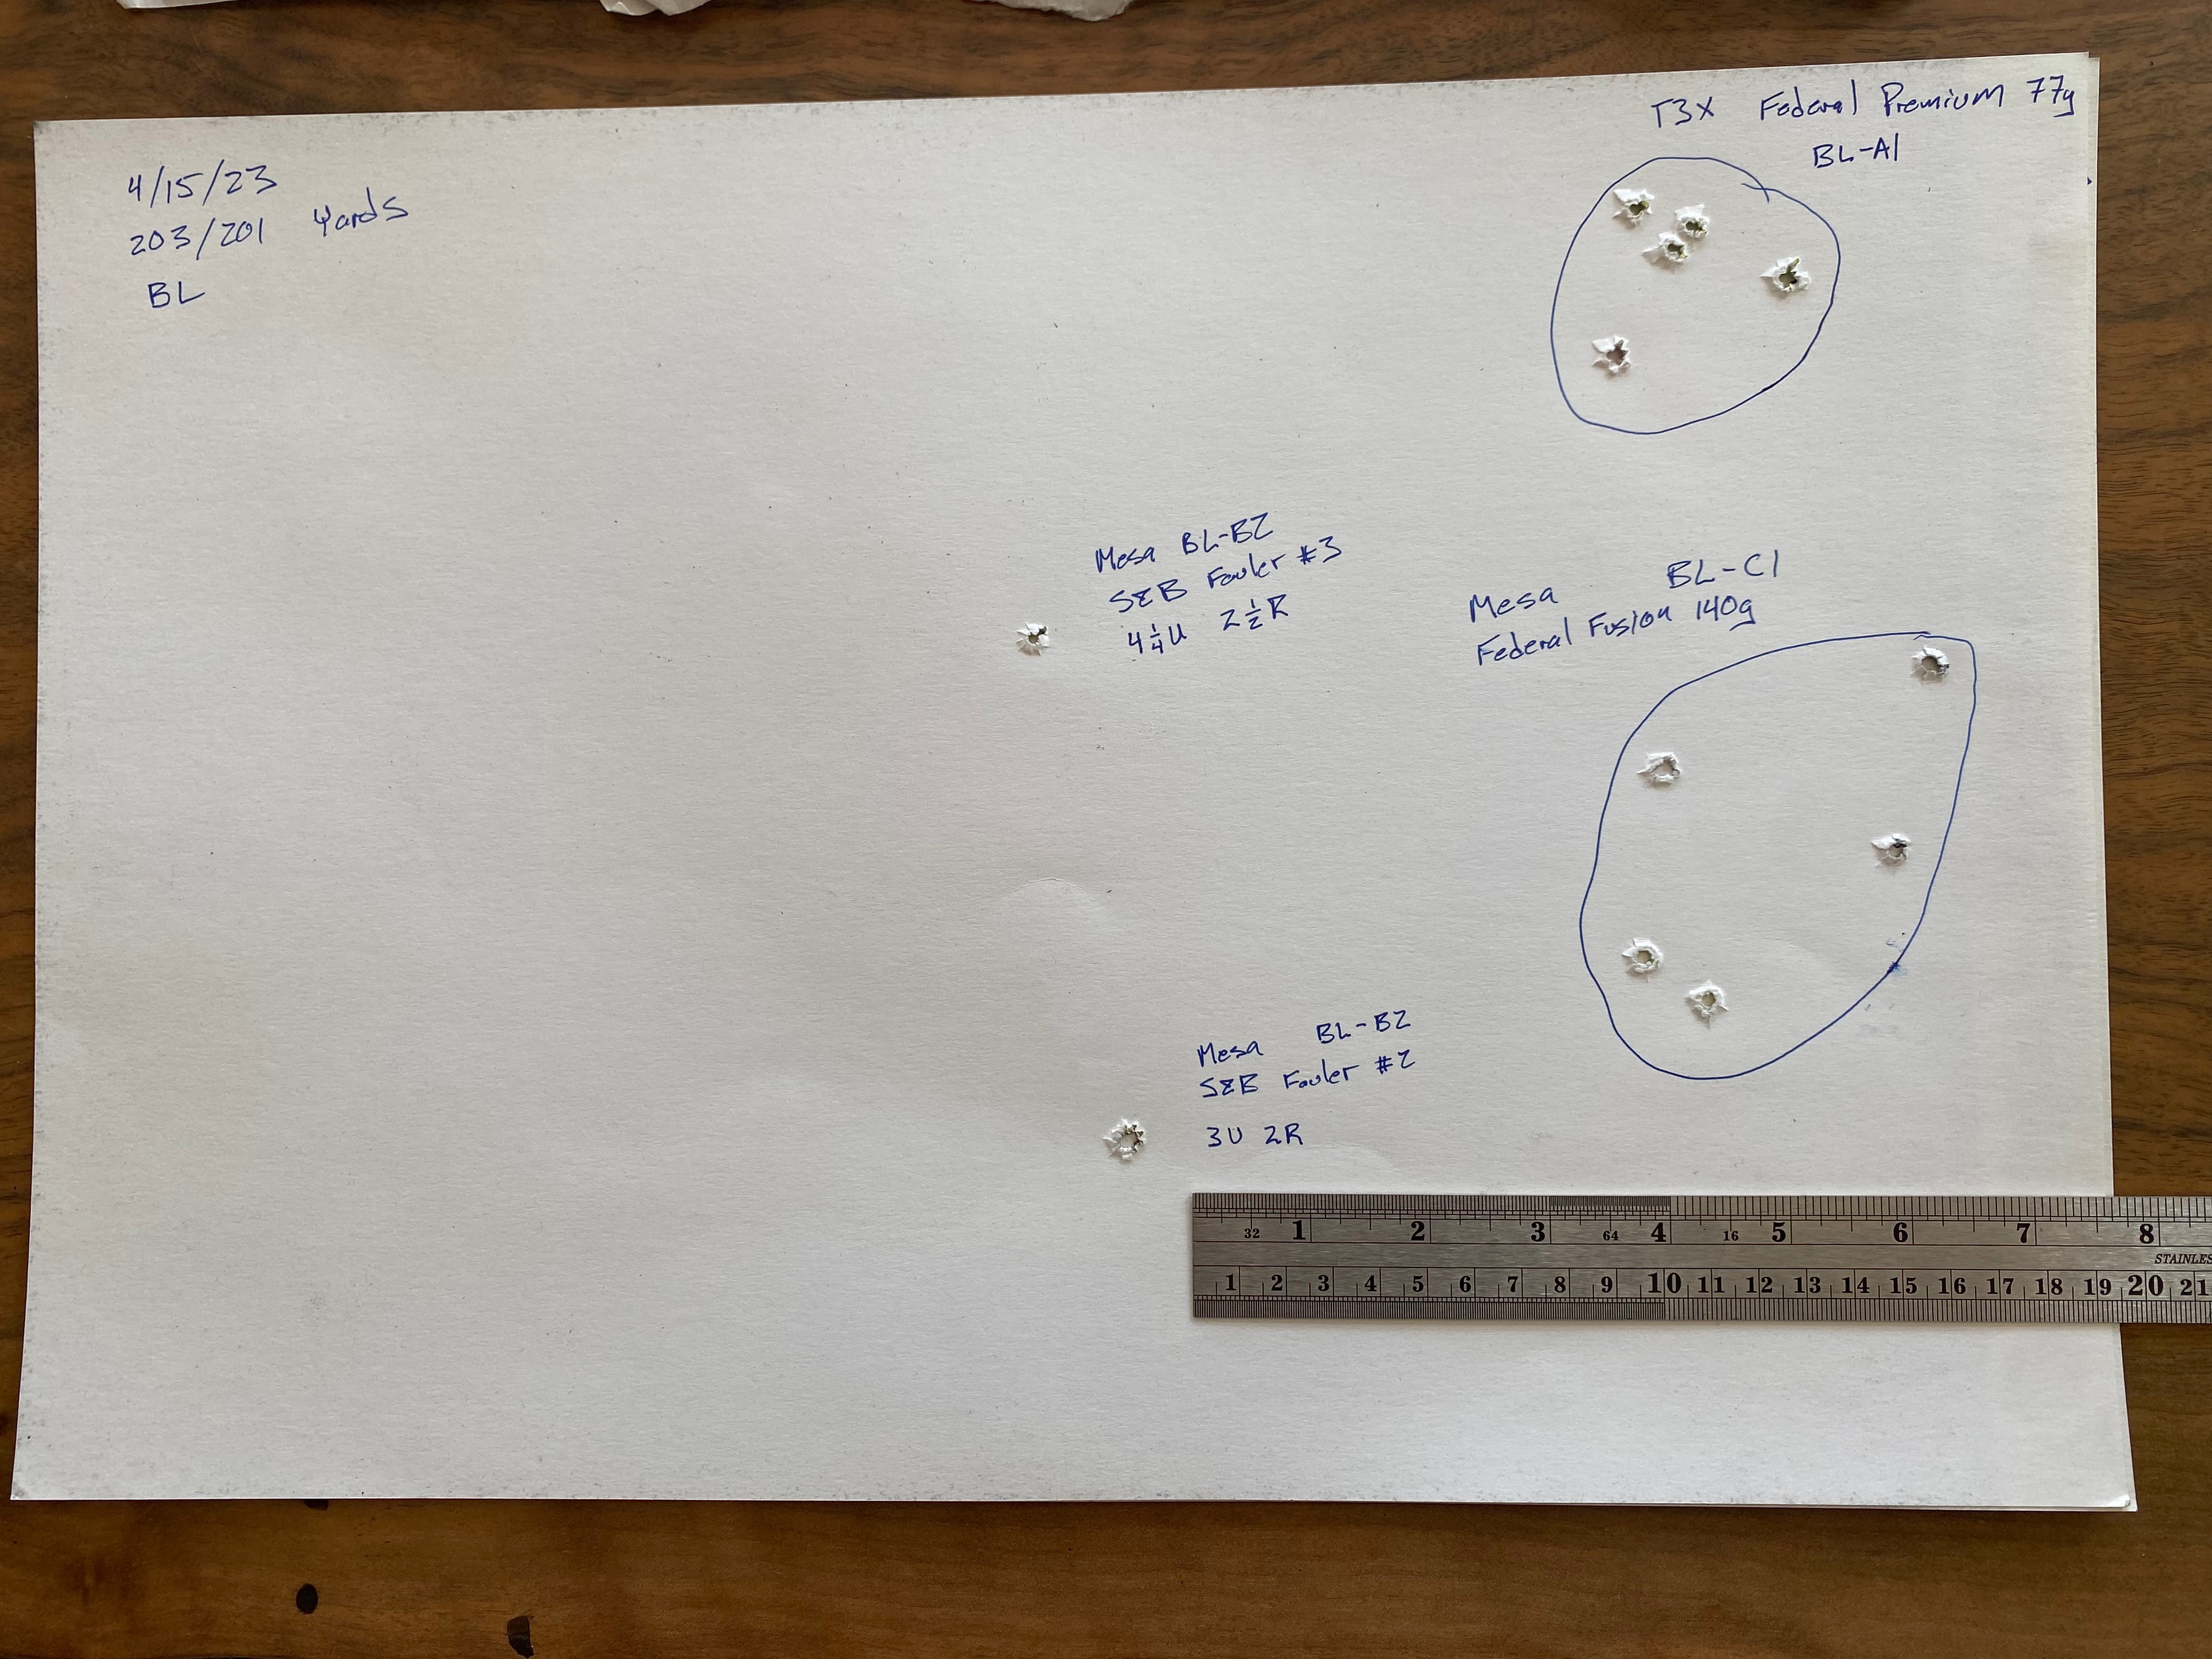 4/15/23
203/201 Yards
BL
T3X Federal Premium 77g
BL-A1
Mesa BL-B2
S&B Fouler #3
4 1/4 U 2 1/2 R
Mesa BL-C1
Federal Fusion 140g
Mesa BL-B2
S&B Fouler #2
3U 2R
32 1 2 3 64 4 16 5 6 7 8
STAINLES
1 2 3 4 5 6 7 8 9 10 11 12 13 14 15 16 17 18 19 20 21